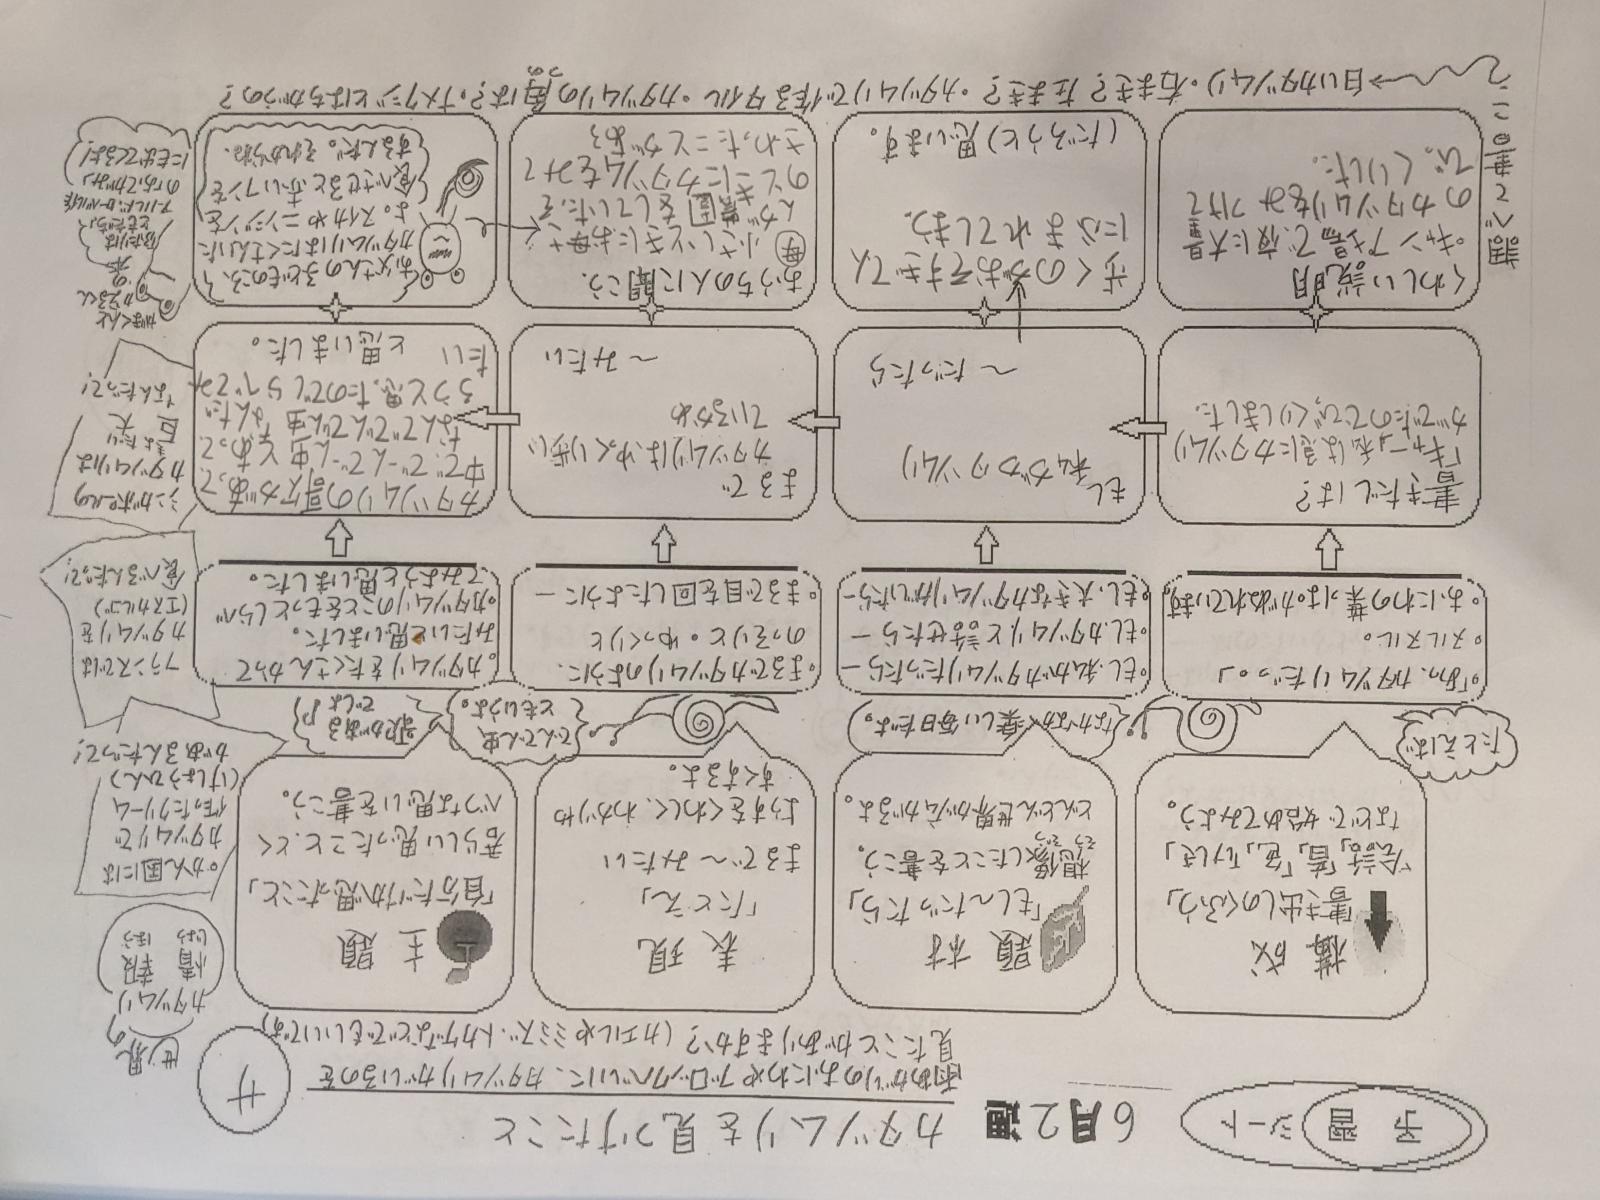 予習シート
6月2週
カタツムリを見つけたこと
サ
雨あがりのおにわやブロックべいに、カタツムリがいるのを
見たことがありますか？（カエルやミミズ・トカゲなどでもいいです）
構成
書き出しのくふう
「会話」「音」「色」「けしき」
などで始めてみよう。
題材
「もし〜だったら」
想像したことを書こう。
そうぞう
どんどん世界が広がるよ。
表現
「たとえ」
まるで〜みたい
ようすをくわしく、わかりや
すくするよ。
主題
「自分だけが思ったこと」
君らしい思ったこと、とく
べつな思いを書こう。
たとえば
なかなか楽しい毎日だよ。
でんでん虫
ともいうよ。
歌がある
でしょ
。「あっ、カタツムリだっ。」
。ヌルヌル。
。おにわの葉っぱがぬれています。
。もし、私がカタツムリだったら―
。もし、カタツムリと話せたら―
。もし、大きなカタツムリがいたら―
。まるでカタツムリのように、
のっそりと。ゆっくりと
。まるで目を回したように―
。カタツムリをたくさんかって
みたいと思いました。
。カタツムリのことをもっとしらべ
てみようと思いました。
書きだしは？
「キャー」私は急にカタツムリ
がでたのでびっくりしました。
もし私がカタツムリ
〜だったら
まるで
カタツムリはゆっくり歩い
ているかめ
〜みたい
カタツムリの歌があって、
中で、でーんでーん虫とあって
なんででんでん虫なんだ
ろうと思ったのでしらべてみ
たいと思いました。
くわしい説明
・キャンプ場で、夜に大量
のカタツムリをみつけて
びっくりした。
歩くのがおそすぎて人
にふまれてしまう。
（だろうと）思います。
おうちの人に聞こう。
母
小さいときにお母さ
んが農園をしていた。そ
のときにカタツムリをみて
さわったことがある
お父さんの子どものころ、
カタツムリはたくさんいた
よ。スイカやニンジンを
食べさせると赤いフンを
するんだ。それからね、
世界の
カタツムリ
情報
じょうほう
。かん国には
カタツムリで
作ったクリーム
（けしょうひん）
があるんだって！
フランスでは
カタツムリを
（エスカルゴ）
食べるんだって！
シンガポールの
カタツムリは
きょだい
巨大
なんだって！
がまくんと
かえるくん
の本
ふたりは
ともだち」
アーノルド・ローベル作
の「おてがみ」
にも出てくるよ！
調べて書こう
→白いカタツムリ・右まき？左まき？・カタツムリで作るタイル・カタツムリの角は？・ナメクジとはちがうの？
つの